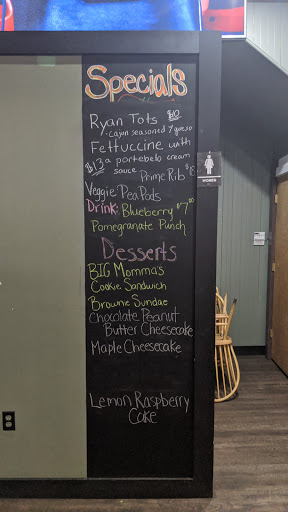 Specials
Ryan Tots $10
-cajun seasoned & queso
Fettuccine with
$13 a portebelo cream
sauce
Prime Rib $18
Veggie: Pea Pods
Drink: Blueberry $7.00
Pomegranate Punch
Desserts
BIG Momma's
Cookie Sandwich
Brownie Sundae
Chocolate Peanut
Butter Cheesecake
Maple Cheesecake
Lemon Raspberry
Cake
WOMEN